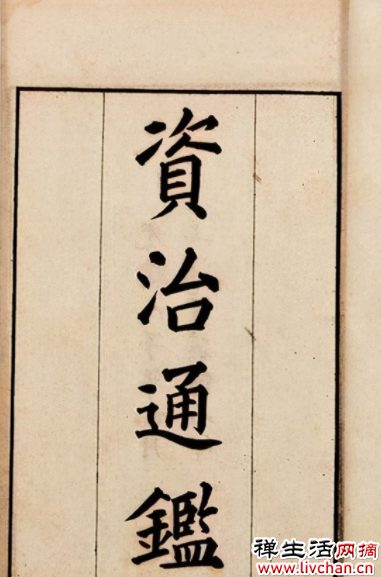 資治通鑑
禅生活网摘
www.livchan.cn